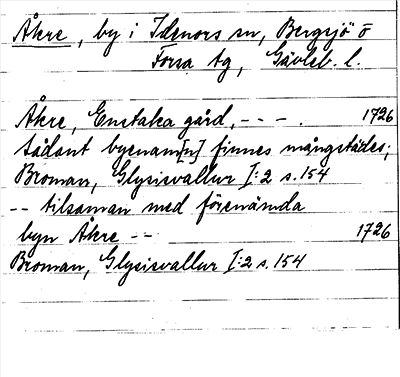 Åkre, by i Idenors sn, Bergsjö o
Forsa tg, Gävleb. l.
Åkre, Enstaka gård, - - - . 1726
sådant bynam[n] finnes mångstädes;
Broman, Glysisvallur I:2 s. 154
-- tilsaman med förenämda
byn Åkre -- 1726
Broman, Glysisvallur I:2 s. 154